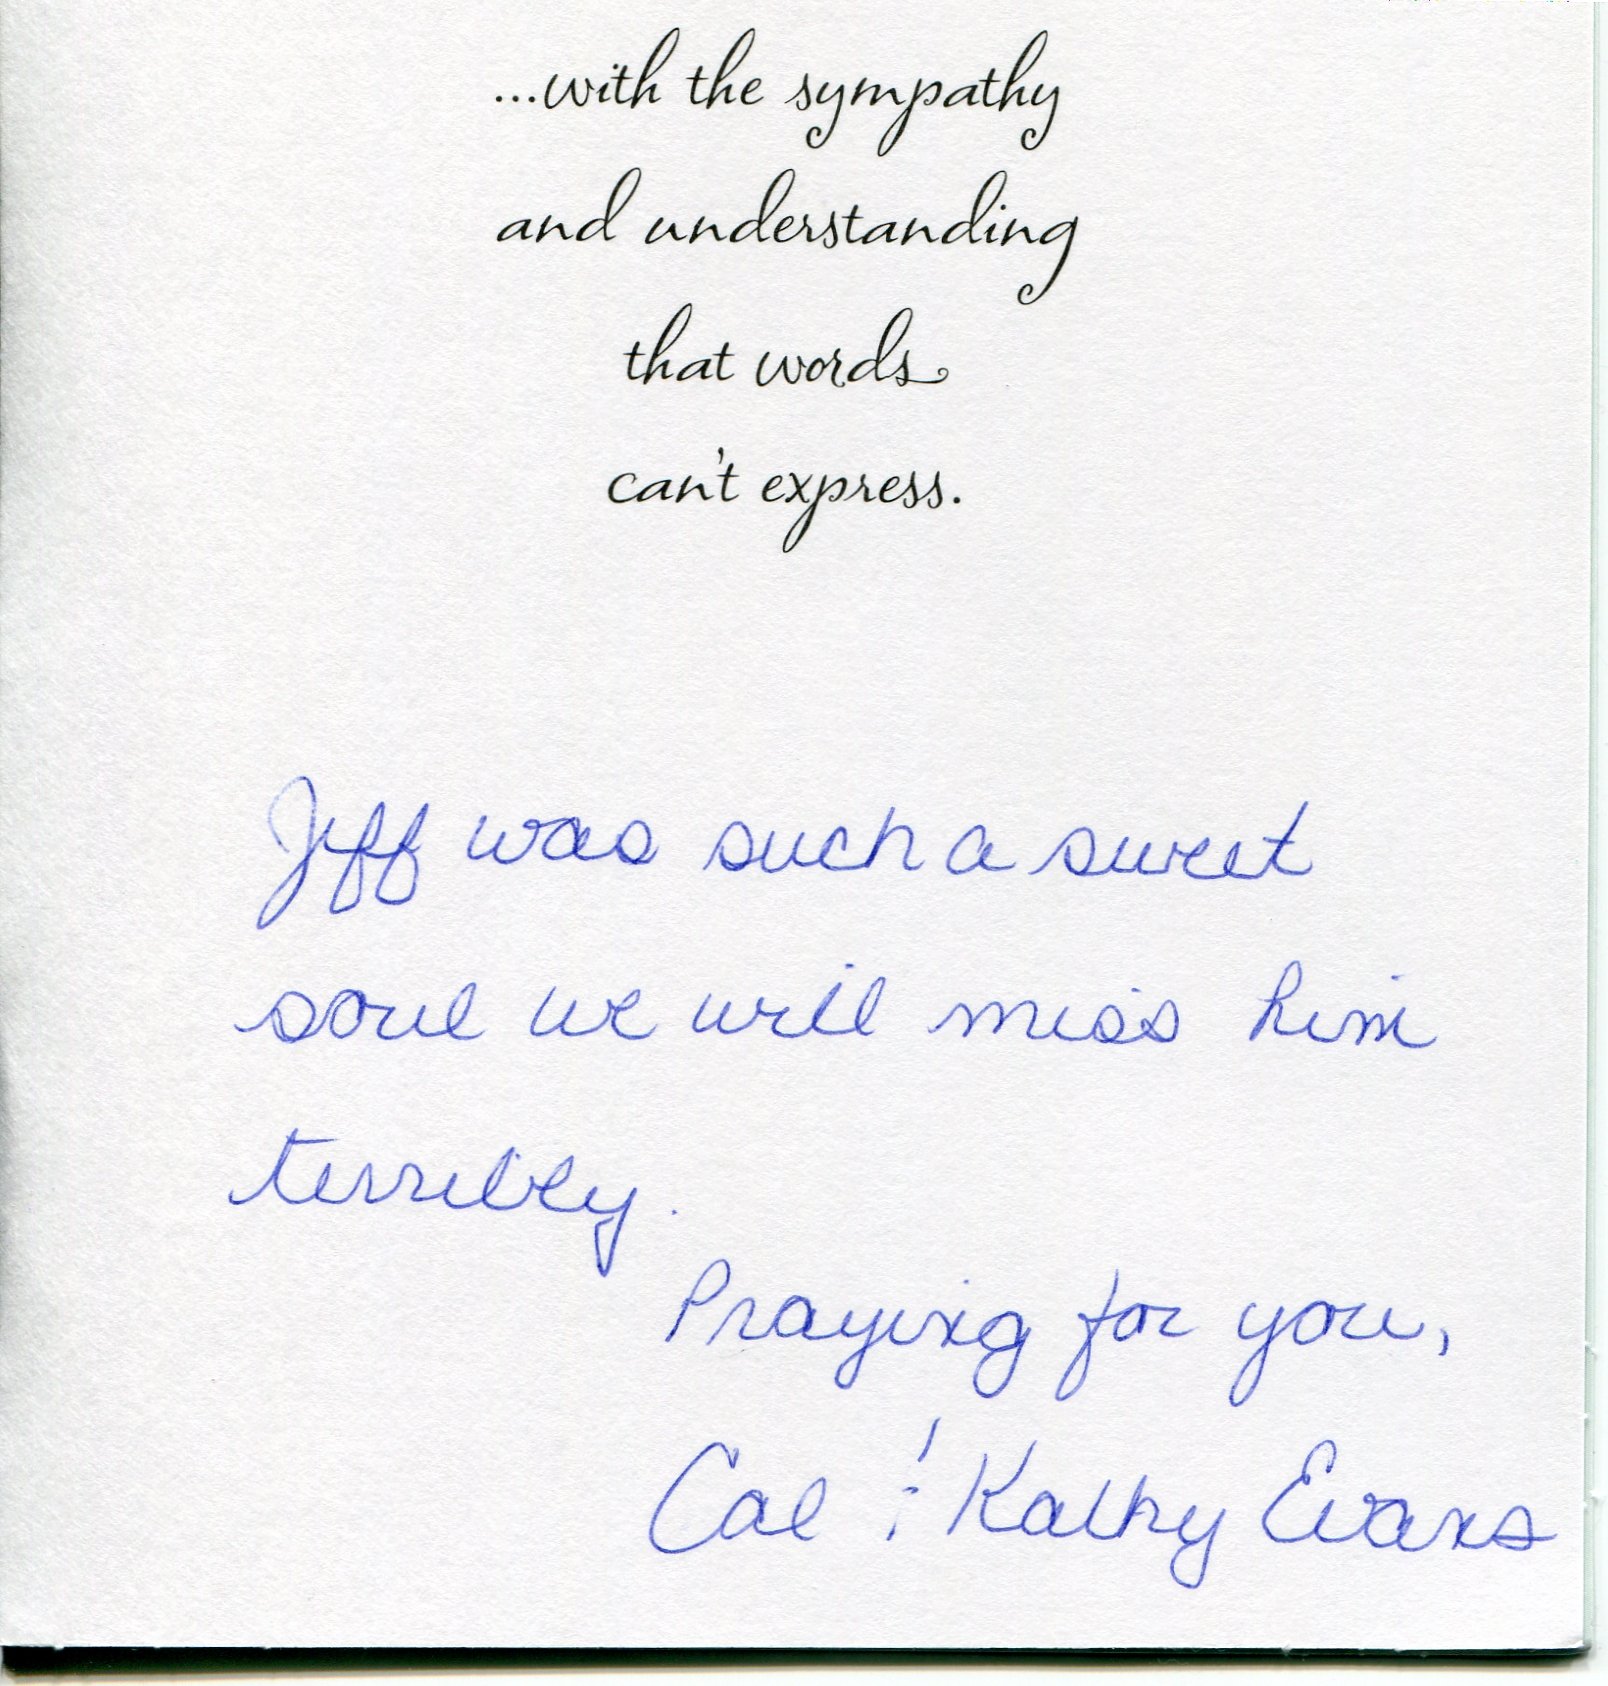 ...with the sympathy
and understanding
that words
can't express.
Jeff was such a sweet
soul we will miss him
terribly.
Praying for you,
Cal & Kathy Evans